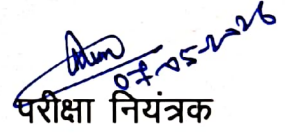 07-05-2026
परीक्षा नियंत्रक